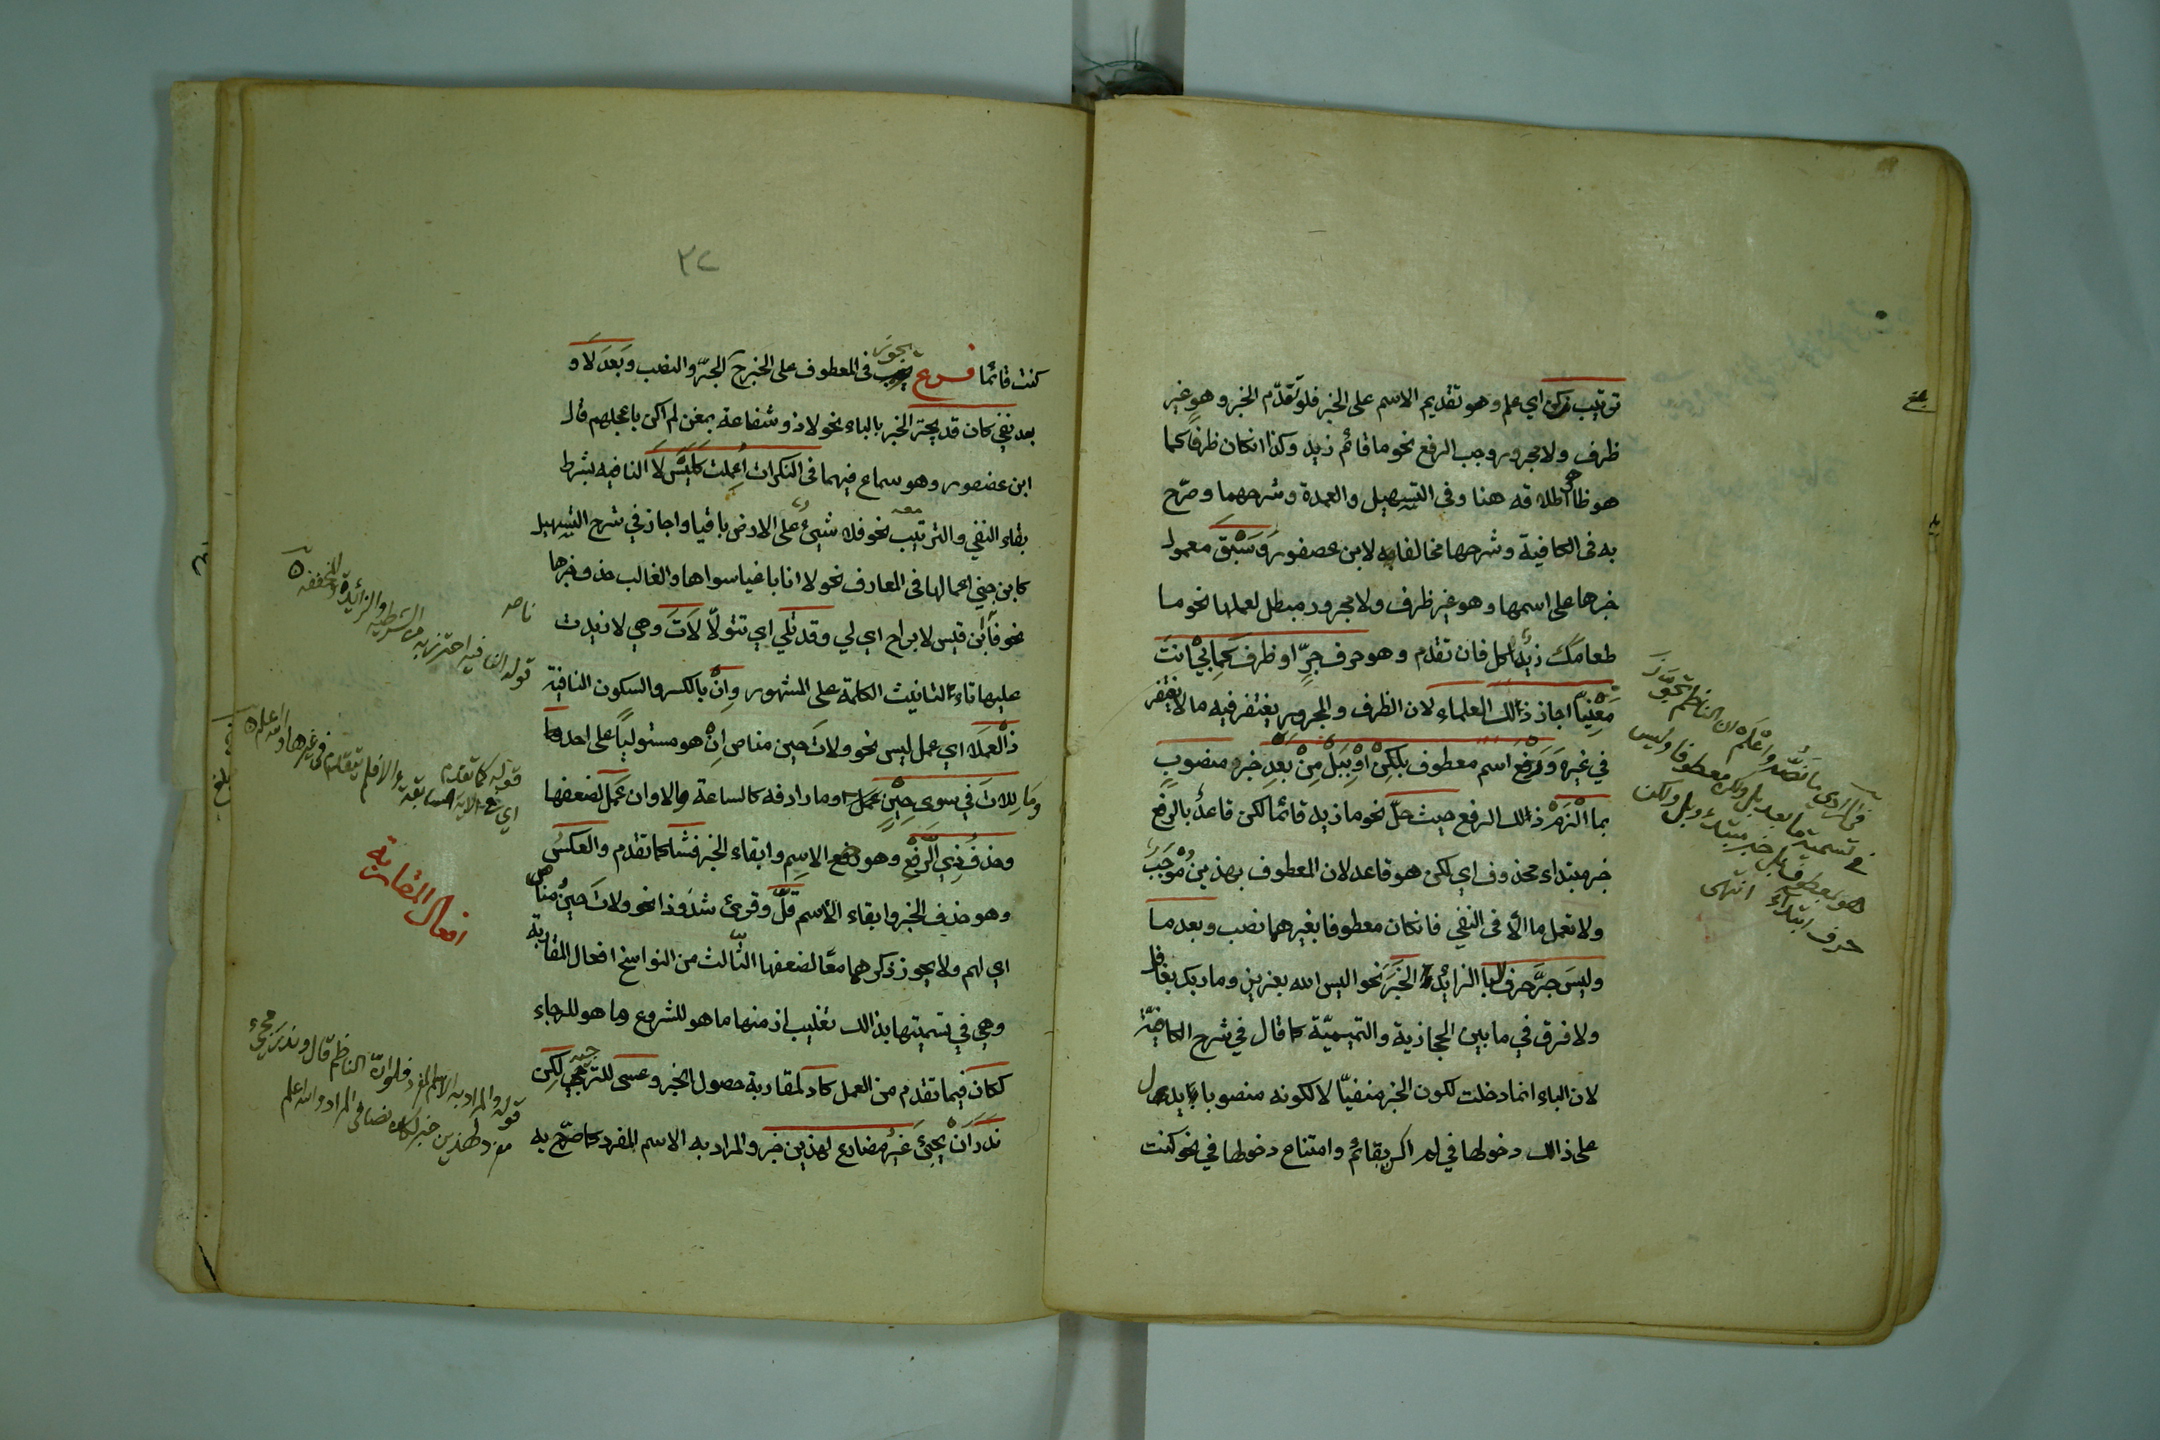 ترتيب زكن اي علم وهو تقديم الاسم على الخبر فلو تقدّم الخبر وهو غير
ظرف ولا مجرور وجب الرفع نحو ما قائم زيد وكذا انكان ظرفا كما
هو ظاهر اطلاقه هنا وفى التسهيل والعمدة وشرحهما وصرّح
به فى الكافية وشرحها مخالفا لابن عصفور وَسَبْقَ معمول
خبرها على اسمها وهو غير ظرف ولا مجرور مبطل لعملها نحو ما
طعامك زيد اكل فان تقدم وهو حرف جرّ او ظرف كَمابِيْ انتَ
مَعْنِيّاً اجاز ذالك العلماء لان الظرف والمجرور يغتفر فيه ما لا يغتفر
في غيره وَرَفْعَ اسم معطوف بلكِنْ اوْبِبَلْ مِنْ بَعْدِ خبر منصوبٍ
بما الْزَمْ ذالك الرفع حيث حلّ نحو ما زيد قائما لكن قاعدٌ بالرفع
خبر مبتداء محذوف اي لكن هو قاعد لان المعطوف بهذين مُوْجَبٌ
ولا تعمل ما الّا فى النفي فانكان معطوفا بغيرهما نصب وبعد ما
وليسَ جرَّ حرف البا الزائدة الخبَرَ نحو اليس الله بعزيز وما ربك بغافل
ولا فرق في ما بين الحجازية والتميميّة كما قال في شرح الكافية
لان الباء انما دخلت لكون الخبر منفيّا لا لكونه منصوبا يدل
على ذالك دخولها في لم اكن بقائم وامتناع دخولها في نحو كنت
قال المرادي ما نصّه واعلم ان الناظم تجوّز
في تسمية ما بعد بل ولكن معطوفا وليس
هو بمعطوف بل خبر مبتداء وبل ولكن
حرف ابتداء انتهى
٣٢
كنت قائما فرع يجوز فى المعطوف على الخبر ح الجرّ والنصب وبَعدَ لا و
بعد نفي كان قد يجرّ الخبر بالباء نحو لا ذو شفاعة بمغن لم اكن باعجلهم قال
ابن عصفور وهو سماع فيهما فى النكرات اُعمِلت كَلَيْسَ لا النافيه بشرط
بقاء النفي والترتيب نحو فلا شيئ على الارض باقيا واجاز في شرح التسهيل
كابن جني اعمالها فى المعارف نحو لا انا باغيا سواها والغالب حذف خبرها
نحو فانا ابن قيس لا براح اي لي وقد تلي اي تتولّا لَاتَ وهي لا زيدت
عليها تاء لتانيث الكلمة على المشهور وانْ بالكسر والسكون النافية
ذا العملا اي عمل ليس نحو ولات حين مناص انْ هو مستولياً على احد
وما لِلاتَ في سوى حِيْنٍ عمل او ما رادفه كالساعة والاوان عَمَلٌ لضعفها
وحذف ذِي الرَّفْعِ وهو الاسم وابقاء الخبر فَشا كما تقدم والعكس
وهو حذف الخبر وابقاء الاسم قلّ وقرئ شذوذا نحو ولات حينُ مناص
اي لهم ولا يجوز ذكرهما معًا لضعفها الثّالث من النواسخ افعال المقاربة
وهي في تسميتها بذالك تغليب اذ منها ما هو للشروع وما هو للرجاء
كَكانَ فيما تقدم من العمل كاد لمقاربة حصول الخبر وعسى للترجي لكِنْ
نَدَرَ اَنْ يجيئَ غَيْرُ مُضارع لهذين خبر والمراد به الاسم المفرد كما صرّح به
ناصر
قوله النافيه احترز به من الشرطيه والزائدة والمخففه
قوله كما تقدم
اي في الاية السابقه والا فلم يتقدم فى غيرها والله اعلم
افعال المقاربة
قوله والمراد به الاسم المفرد فلو ان الناظم قال وندر مجيء
مفرد لهذين خبر لكان نصا فى المراد والله اعلم
بلغ